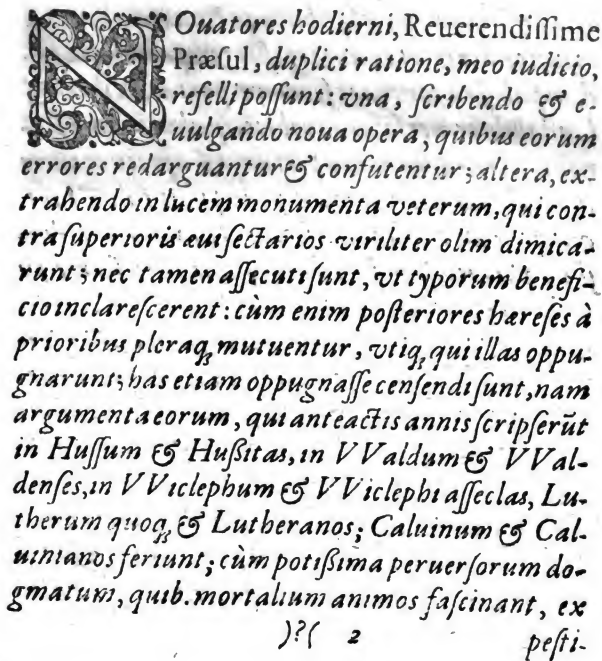 NOuatores hodierni, Reuerendiſſime
Præſul, duplici ratione, meo iudicio,
refelli poſſunt: vna, ſcribendo & e-
uulgando noua opera, quibus eorum
errores redarguantur & confutentur; altera, ex-
trahendo in lucem monumenta veterum, qui con-
tra ſuperioris æui ſectarios viriliter olim dimica-
runt; nec tamen aſſecuti ſunt, vt typorum benefi-
cio inclareſcerent: cùm enim poſteriores hæreſes à
prioribus pleraq; mutuentur, vtiq; qui illas oppu-
gnarunt; has etiam oppugnaſſe cenſendi ſunt, nam
argumenta eorum, qui anteactis annis ſcripſerūt
in Huſſum & Hußitas, in VValdum & VVal-
denſes, in VViclephum & VViclephi aſſeclas, Lu-
therum quoq; & Lutheranos; Caluinum & Cal-
uinianos feriunt; cùm potißima peruerſorum do-
gmatum, quib. mortalium animos faſcinant, ex
)?( 2 peſti-